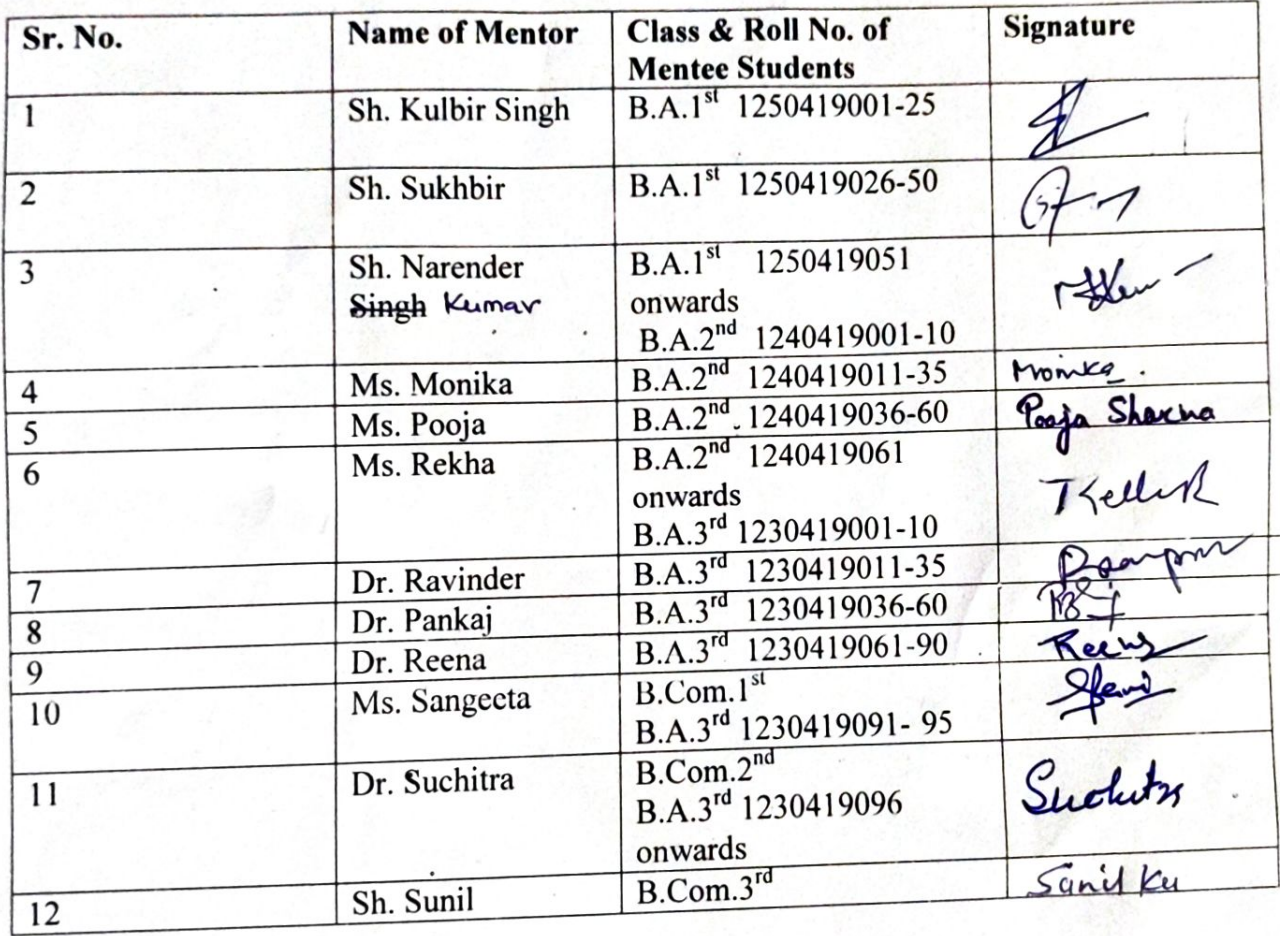 Sr. No. Name of Mentor Class & Roll No. of Signature
Mentee Students
1 Sh. Kulbir Singh B.A.1st 1250419001-25
2 Sh. Sukhbir B.A.1st 1250419026-50
3 Sh. Narender B.A.1st 1250419051
Singh Kumar onwards
B.A.2nd 1240419001-10
4 Ms. Monika B.A.2nd 1240419011-35 Monika.
5 Ms. Pooja B.A.2nd 1240419036-60 Pooja Sharma
6 Ms. Rekha B.A.2nd 1240419061
onwards
B.A.3rd 1230419001-10
7 Dr. Ravinder B.A.3rd 1230419011-35
8 Dr. Pankaj B.A.3rd 1230419036-60
9 Dr. Reena B.A.3rd 1230419061-90 Reena
10 Ms. Sangeeta B.Com.1st
B.A.3rd 1230419091- 95
11 Dr. Suchitra B.Com.2nd Suchitra
B.A.3rd 1230419096
onwards
12 Sh. Sunil B.Com.3rd Sunil Ku